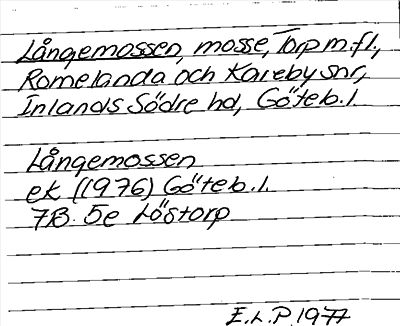 Långemossen, mosse, Torp m.fl.,
Romelanda och Kareby snr,
Inlands Södre hd, Göteb.l.
Långemossen
ek (1976) Göteb.l.
7B 5e Löstorp
E.L.P. 1977